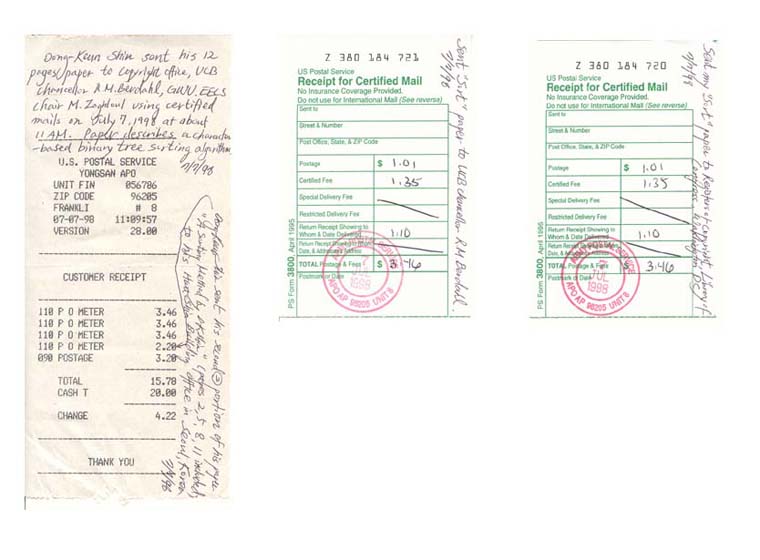 Dong-Keun Shin sent his 12
pages/paper to Copyright office, UCB
Chancellor R.M. Berdahl, GWU, EECS
Chair M. Zaghloul using certified
mails on July 7, 1998 at about
11 AM. Paper describes a character
-based binary tree sorting algorithm
7/7/98
U.S. POSTAL SERVICE
YONGSAN APO
UNIT FIN 056786
ZIP CODE 96205
FRANKLI # 8
07-07-98 11:09:57
VERSION 28.00
CUSTOMER RECEIPT
110 P O METER 3.46
110 P O METER 3.46
110 P O METER 3.46
110 P O METER 2.20
090 POSTAGE 3.20
TOTAL 15.78
CASH T 20.00
CHANGE 4.22
THANK YOU
sent his second portion of his paper
"A Sorting Method by " (pages 2, 5, 8, 11 included)
to his Building office in Seoul, Korea
7/7/98
Z 380 184 721
US Postal Service
Receipt for Certified Mail
No Insurance Coverage Provided.
Do not use for International Mail (See reverse)
Sent to
Street & Number
Post Office, State, & ZIP Code
Postage $ 1.01
Certified Fee 1.35
Special Delivery Fee
Restricted Delivery Fee
Return Receipt Showing to
Whom & Date Delivered 1.10
Return Receipt Showing to Whom,
Date, & Addressee's Address
TOTAL Postage & Fees $ 3.46
Postmark or Date
PS Form 3800, April 1995
JUL
1998
APO AP 96205 UNIT 8
Sent "Sort" paper to UCB Chancellor R M Berdahl.
7/7/98
Z 380 184 720
US Postal Service
Receipt for Certified Mail
No Insurance Coverage Provided.
Do not use for International Mail (See reverse)
Sent to
Street & Number
Post Office, State, & ZIP Code
Postage $ 1.01
Certified Fee 1.35
Special Delivery Fee
Restricted Delivery Fee
Return Receipt Showing to
Whom & Date Delivered 1.10
Return Receipt Showing to Whom,
Date, & Addressee's Address
TOTAL Postage & Fees $ 3.46
Postmark or Date
PS Form 3800, April 1995
JUL
1998
APO AP 96205 UNIT 8
Send my "Sort" paper to Register of Copyright, Library of
Congress, Washington DC
7/7/98